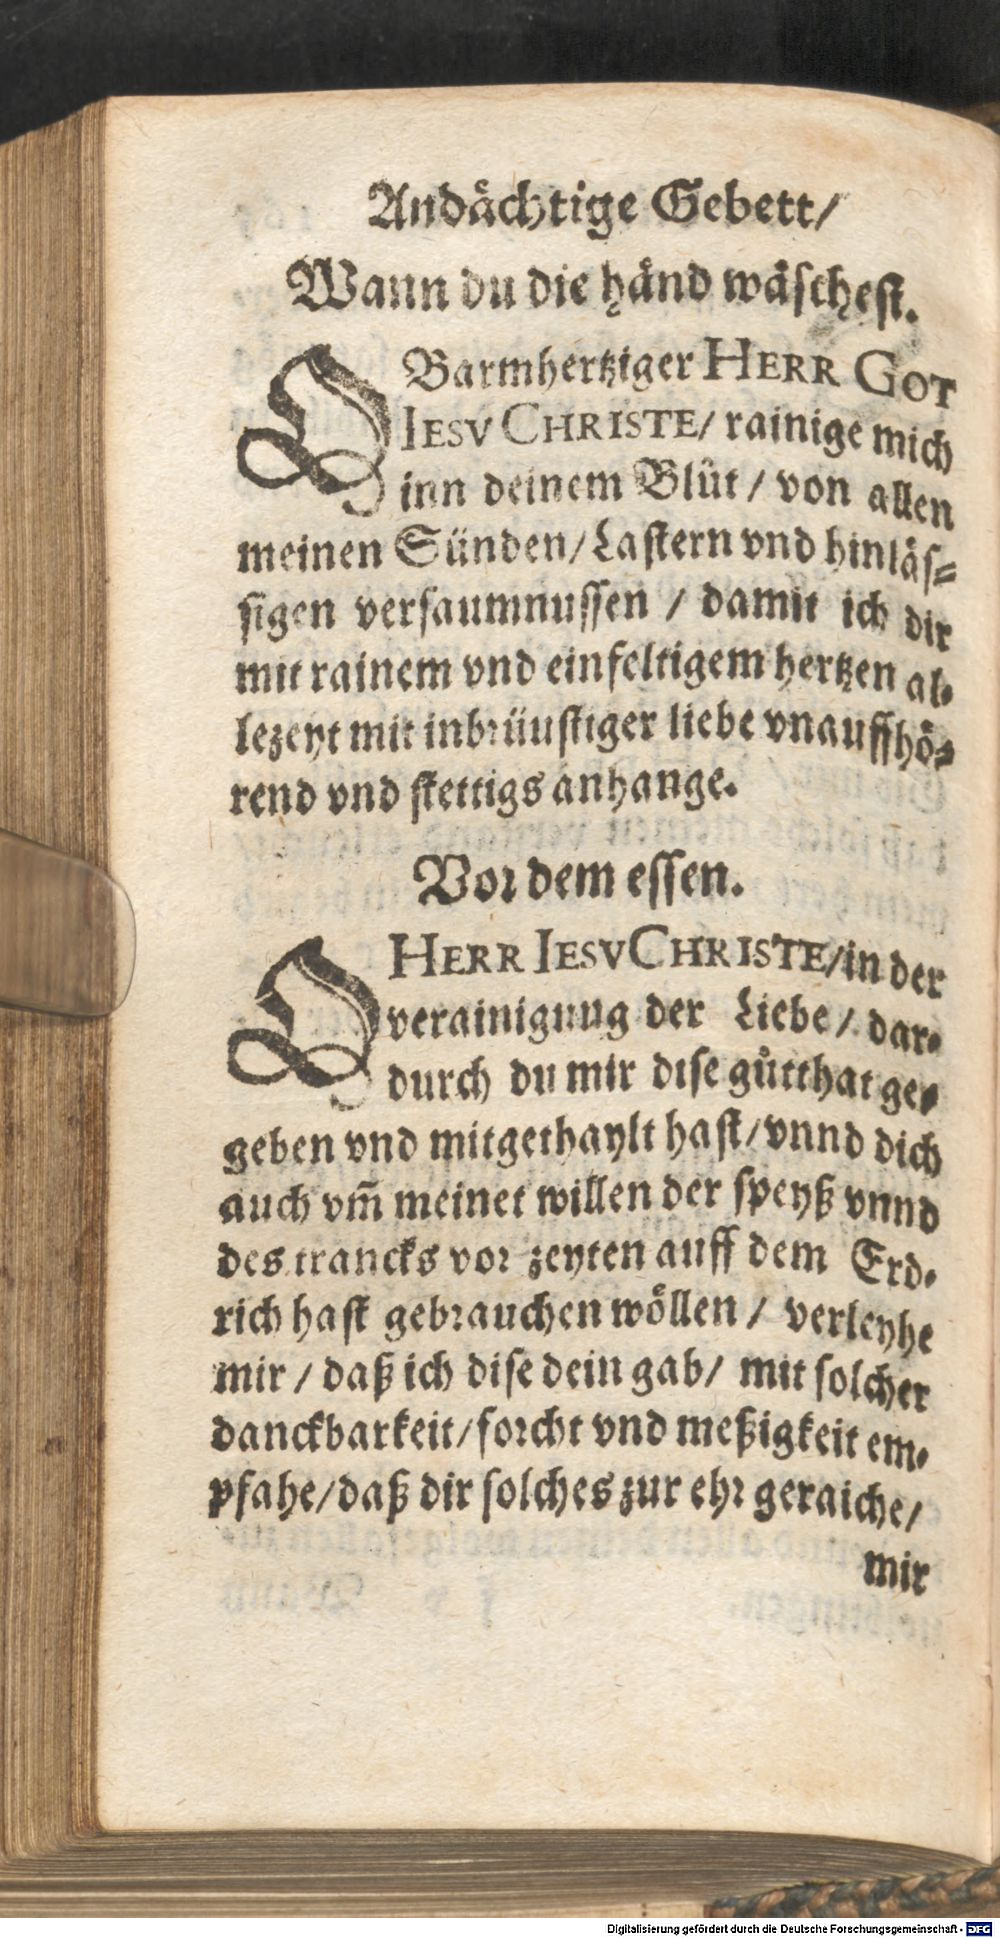 Andaͤchtige Gebett/
Wann du die haͤnd waͤſcheſt.
O Barmhertziger HERR GOT
IESV CHRISTE/ rainige mich
inn deinem Bluͦt/ von allen
meinen Sünden/ Laſtern vnd hinlaͤſ⸗
ſigen verſaumnuſſen / damit ich dir
mit rainem vnd einfeltigem hertzen al⸗
lezeyt mit inbrüuſtiger liebe vnauffhoͤ⸗
rend vnd ſtettigs anhange.
Vor dem eſſen.
O HERR IESV CHRISTE/ in der
verainigung der Liebe/ dar⸗
durch du mir diſe guͤtthat ge⸗
geben vnd mitgethaylt haſt/ vnnd dich
auch vm̃ meinet willen der ſpeyß vnnd
des trancks vor zeyten auff dem Erd⸗
rich haſt gebrauchen woͤllen / verleyhe
mir / daß ich diſe dein gab/ mit ſolcher
danckbarkeit/ forcht vnd meßigkeit em⸗
pfahe/ daß dir ſolches zur ehr geraiche/
mir
Digitalisierung gefördert durch die Deutsche Forschungsgemeinschaft - DFG